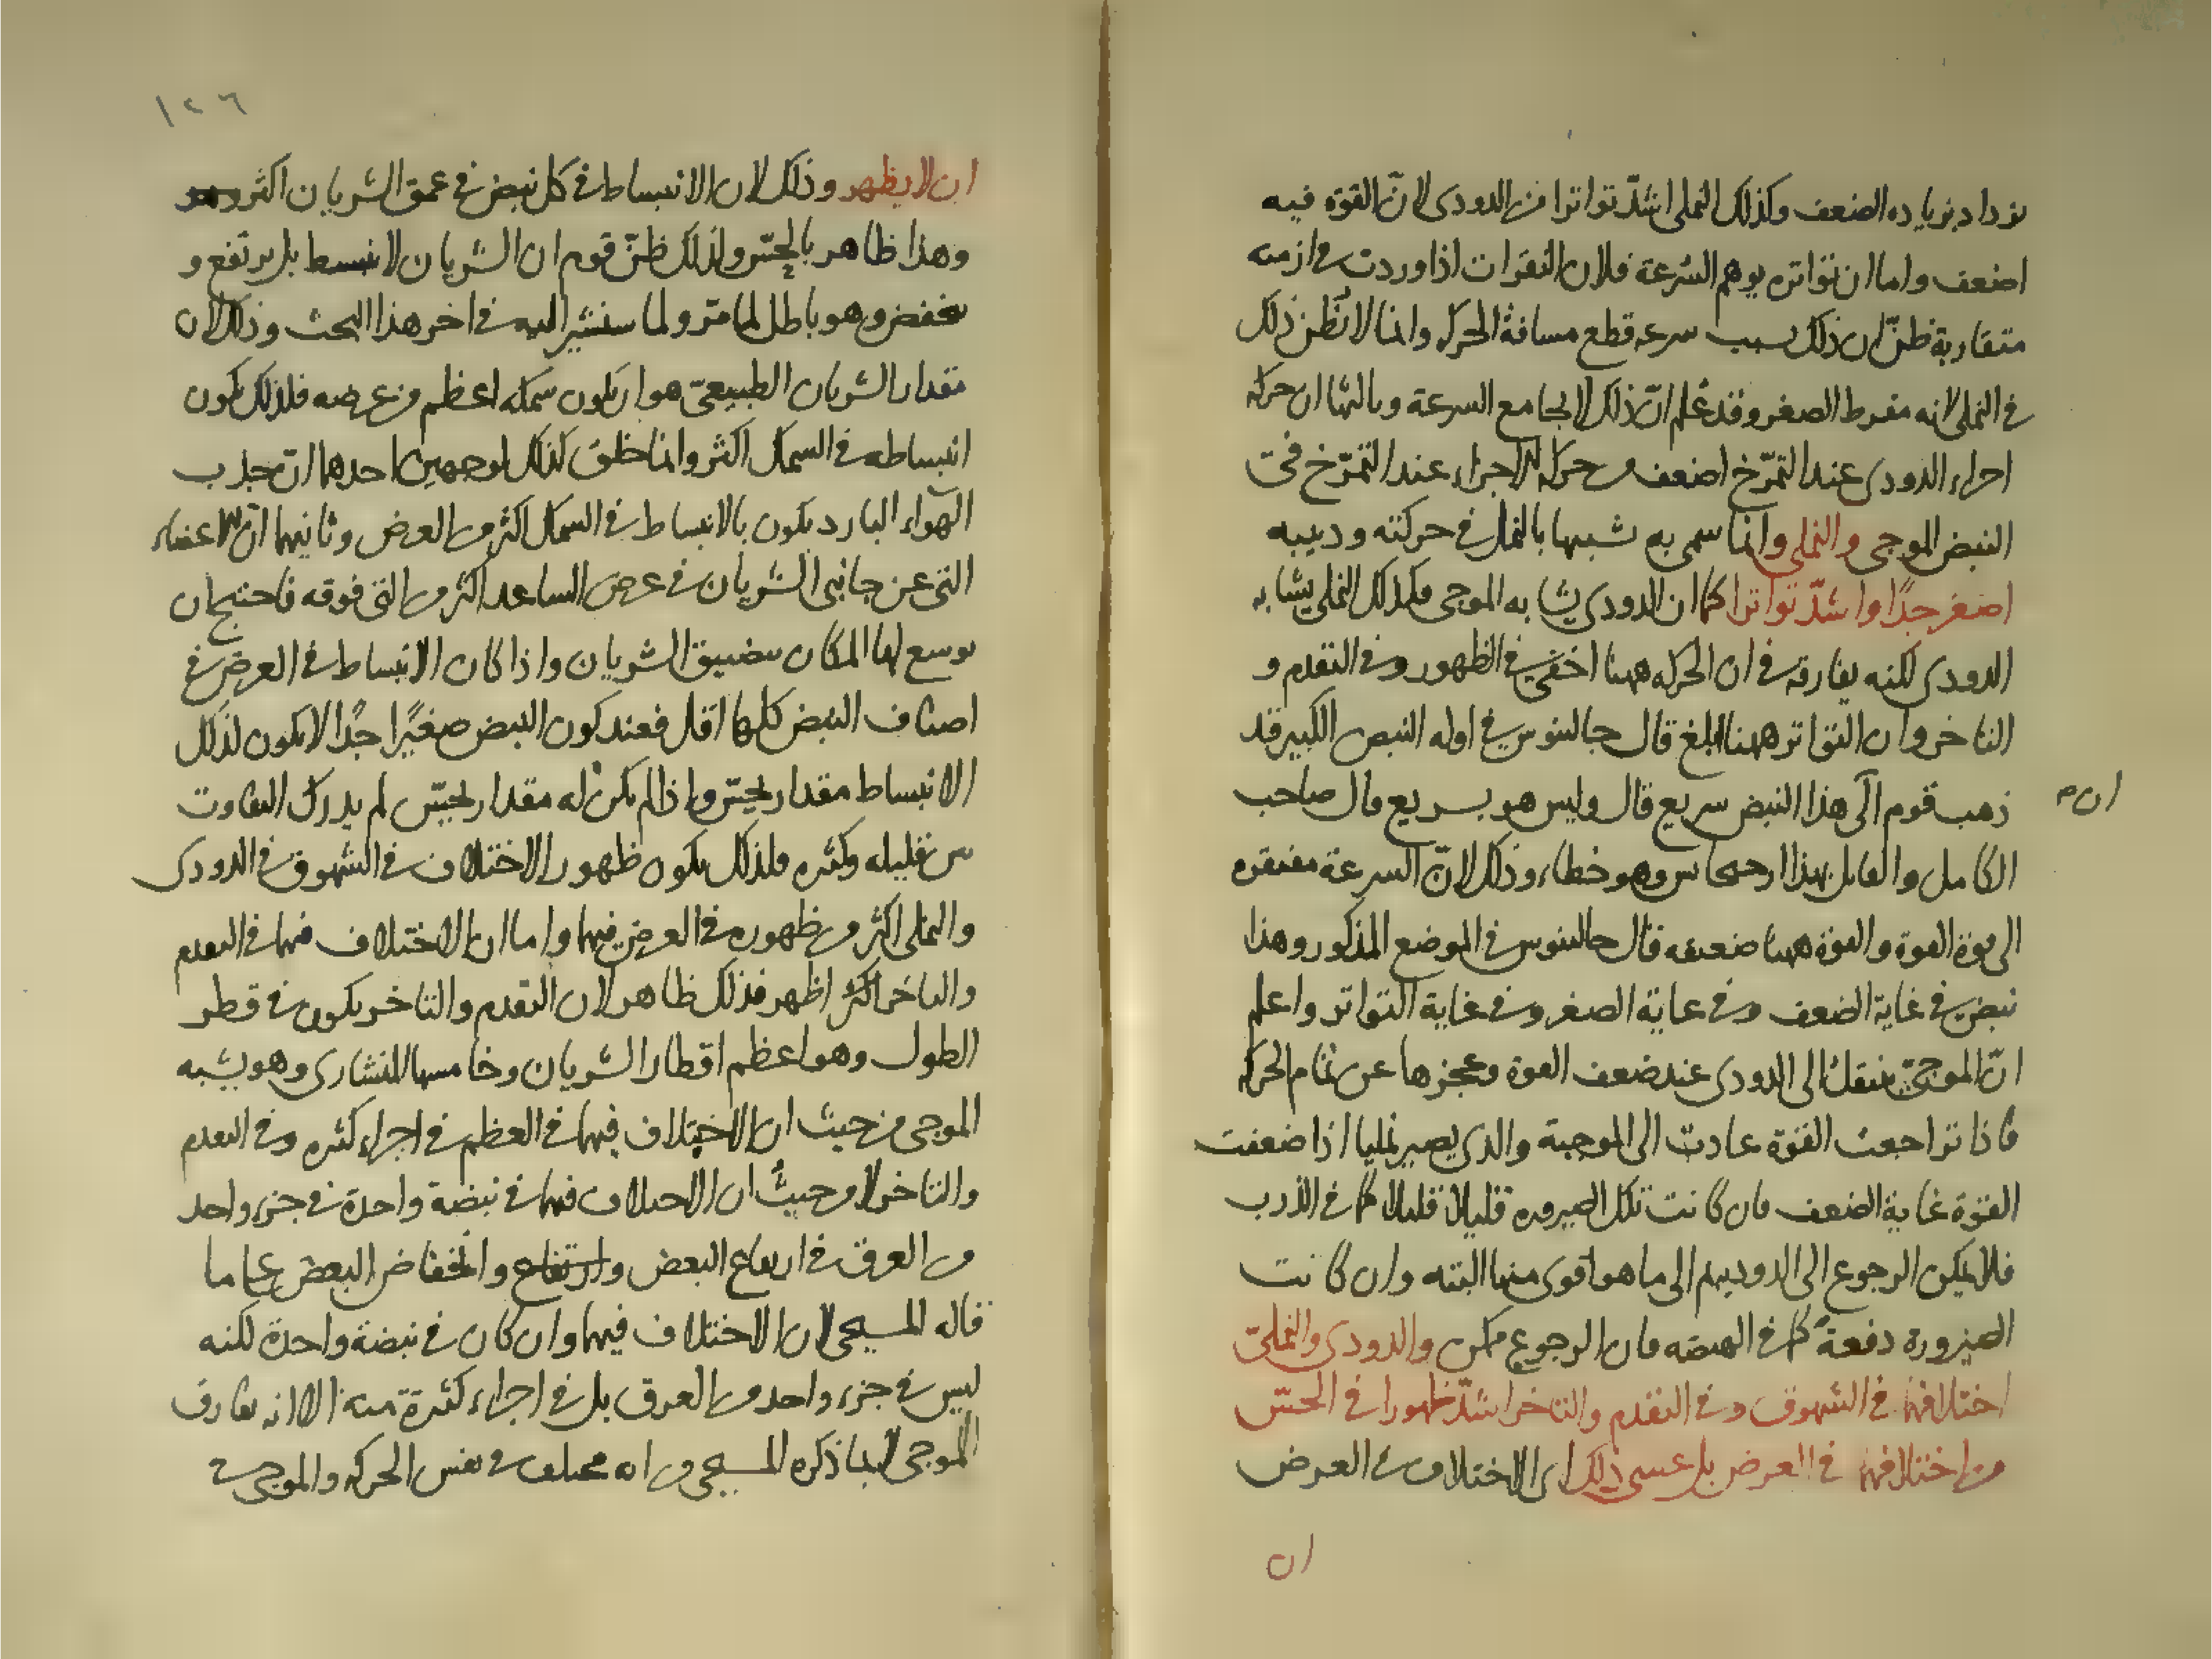 يزداد بزياده الضعف وكذلك النملى اشدّ تواترا من الدودى لانّ القوة فيه
اضعف واما ان تواتره يوهم السّرعة فلان النقرات اذا وردت فى ازمنه
متقاربة ظنّ ان ذلك بسبب سرعه قطع مسافة الحركه وانما لا نظن ذلك
فى النملى لانه مفرط الصغر وقد عُلم انّ ذلك لا يجامع السرعة وثالثها ان حركه
اجراء الدودى عند التمرّخ اضعف من حركه الاجزاء عند التمرّخ فى
النبض الموجى والنملى وانما سمى به شبيها بالنمل فى حركته ودبيبه
اصغر جدًا واشدّ تواترا كما ان الدودى يشابه الموجى فكذلك النملى يشابه
الدودى لكنه يفارقه فى ان الحركه ههنا اخفى فى الظهور وفى التقدم و
التاخر وان التواتر ههنا ابلغ قال جالينوس فى اوله النبض الكبير قد
ذهب قوم الى هذا النبض سريع قال وليس هو بسريع قال صاحب
ان م
الكامل والقايل بهذا ارحجانس وهو خطاء وذلك لانّ السرعة مفتقره
الى قوة القوة والقوة ههنا ضعيفه قال جالينوس فى الموضع المذكور وهذا
نبض فى غاية الضعف وفى غاية الصغر وفى غاية التواتر واعلم
انّ الموجىّ ينتقل الى الدودى عند ضعف القوة وعجزها عن تمام الحركه
فاذا تراجعت القوّة عادت الى الموجية والذى يصير نمليا اذا ضعفت
القوّة غاية الضعف فان كانت تلك الصيروره قليلا قليلا كما فى الذرب
فلا يمكن الرجوع الى الدوديه ثم الى ما هو اقوى منها البته وان كانت
الصيرورة دفعةً كما فى الهيضه فان الرجوع ممكن والدودى والنملىّ
اختلافهما فى الشهوق وفى التقدم والتاخر اشدّ ظهورا فى الحسّ
من اختلافهما فى العرض بل عسى ذلك اى الاختلاف فى العرض
ان
١٢٦
ان لا يظهر وذلك لان الانبساط فى كل نبض فى عمق الشريان اكثر
وهذا ظاهر بالحسّ ولذلك ظنّ قوم ان الشريان لا ينبسط بل يرتفع و
ينخفض وهو باطل لما مرّ ولما سنشير اليه فى اخر هذا البحث وذلك لان
مقدار الشريان الطبيعىّ هو ان يكون سمكه اعظم من عرضه فلذلك يكون
انبساطه فى السمك اكثر وانما خلق كذلك لوجهين احدهما انّ جذب
الهوآء البارد يكون بالانبساط فى السمك اكثر من العرض وثانيهما انّ الاعضاء
التى عن جانبى الشريان فى عرض الساعد اكثر من التى فوقه فاحتيج ان
يوسع لها المكان بتضييق الشريان واذا كان الانبساط فى العرض فى
اصناف النبض كلها اقل فعند كون النبض صغيرًا جدًا لا يكون لذلك
الانبساط مقدار يحسّ واذا لم يكن له مقدار يحسّ لم يدرك التفاوت
بين قليله وكثيره فلذلك يكون ظهور الاختلاف فى الشهوق فى الدودى
والنملى اكثر من ظهوره فى العرض فيهما واما ان الاختلاف فيهما فى التقدم
والتاخر اكثر اظهر فذلك ظاهر لان التقدم والتاخر يكون فى قطر
الطول وهو اعظم اقطار الشريان وخامسها المنشارى وهو يشبه
الموجى من حيث ان الاختلاف فيهما فى العظم فى اجزاء كثيره وفى التقدم
والتاخر لا من حيث ان الاختلاف فيهما فى نبضة واحدة فى جزء واحد
من العرق فى ارتفاع البعض وارتفاع وانخفاض البعض على ما
قاله المسيحى لان الاختلاف فيهما وان كان فى نبضة واحدة لكنه
ليس فى جزء واحد من العرق بل فى اجزاء كثيرة منه الا انه يفارق
الموجى لا بما ذكره المسيحى من انه مختلف فى نفس الحركه والموجى